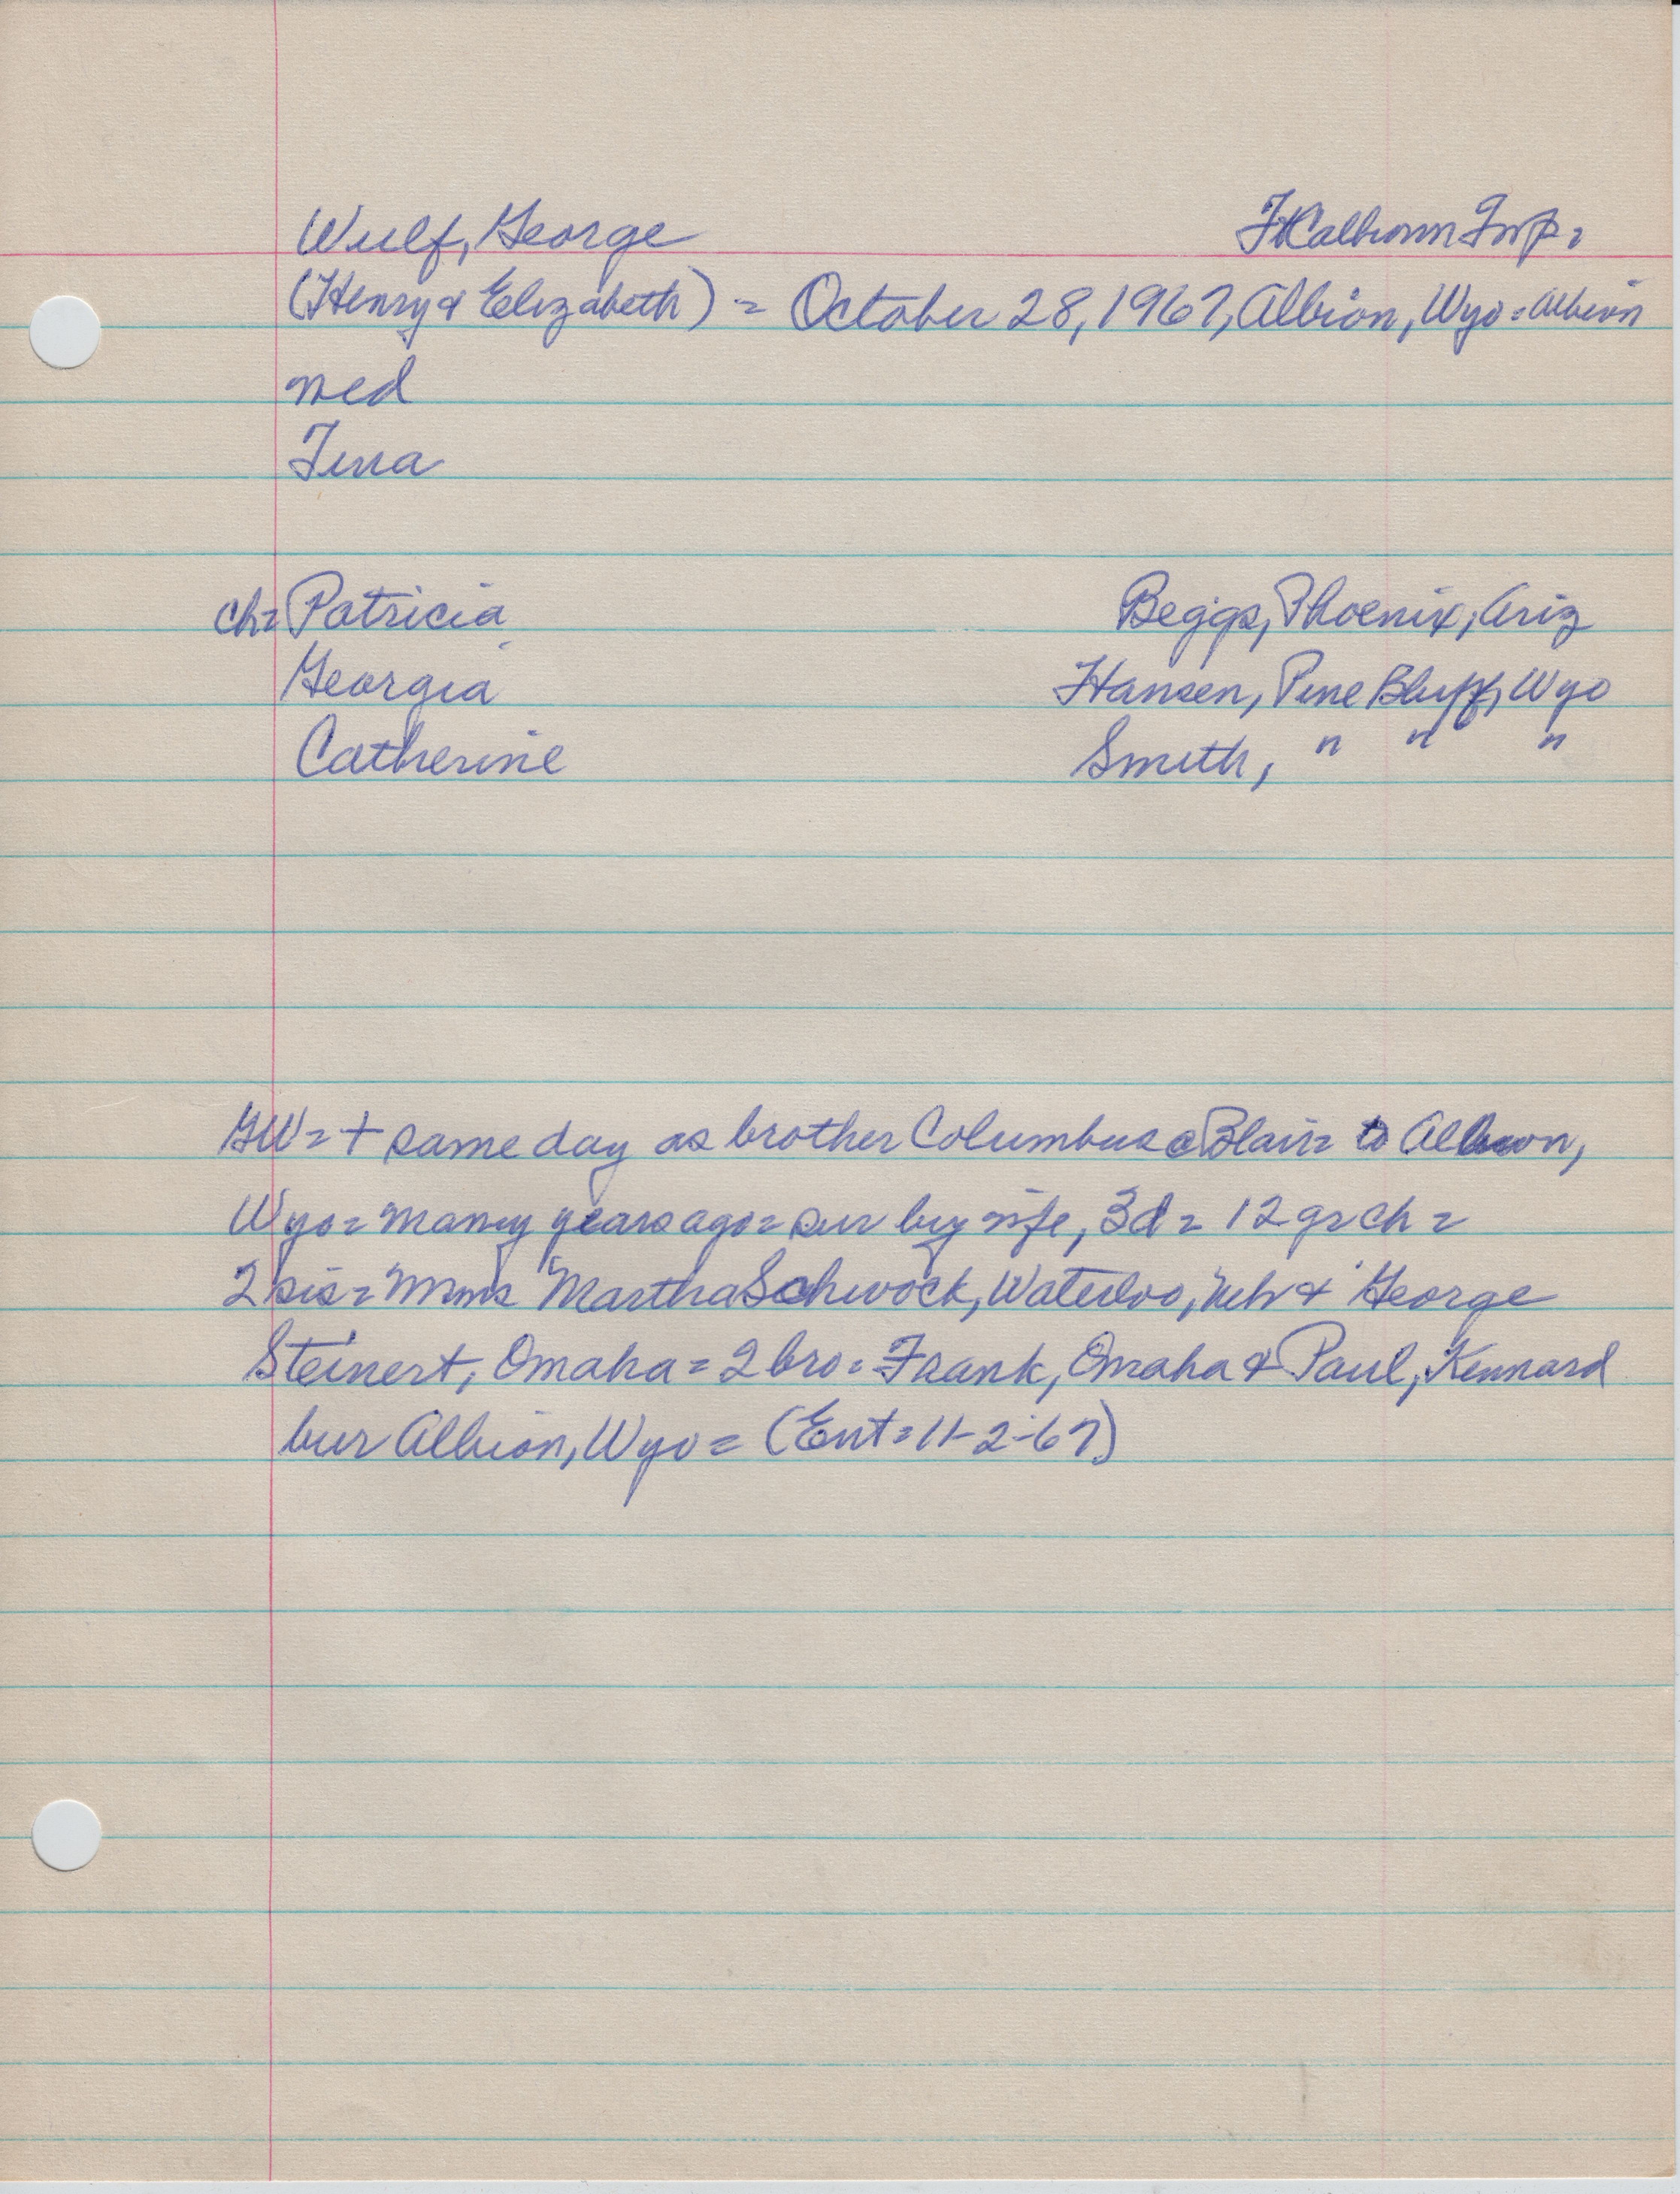 Wulf, George Ft Calhoun Twp =
(Henry & Elizabeth) = October 28, 1967, Albion, Wyo = Albion
med
Tena
ch = Patricia Beggs, Phoenix, Ariz
Georgia Hansen, Pine Bluff, Wyo
Catherine Smith, " " "
GW = + same day as brother Columbus @ Blair = to Albion,
Wyo = many years ago = sur by wife, 3d = 12 gr ch =
2 sis = Mms Martha Schwock, Waterloo, Neb & George
Steinert, Omaha = 2 bro = Frank, Omaha & Paul, Kennard
bur Albion, Wyo = (Ent = 11-2-67)